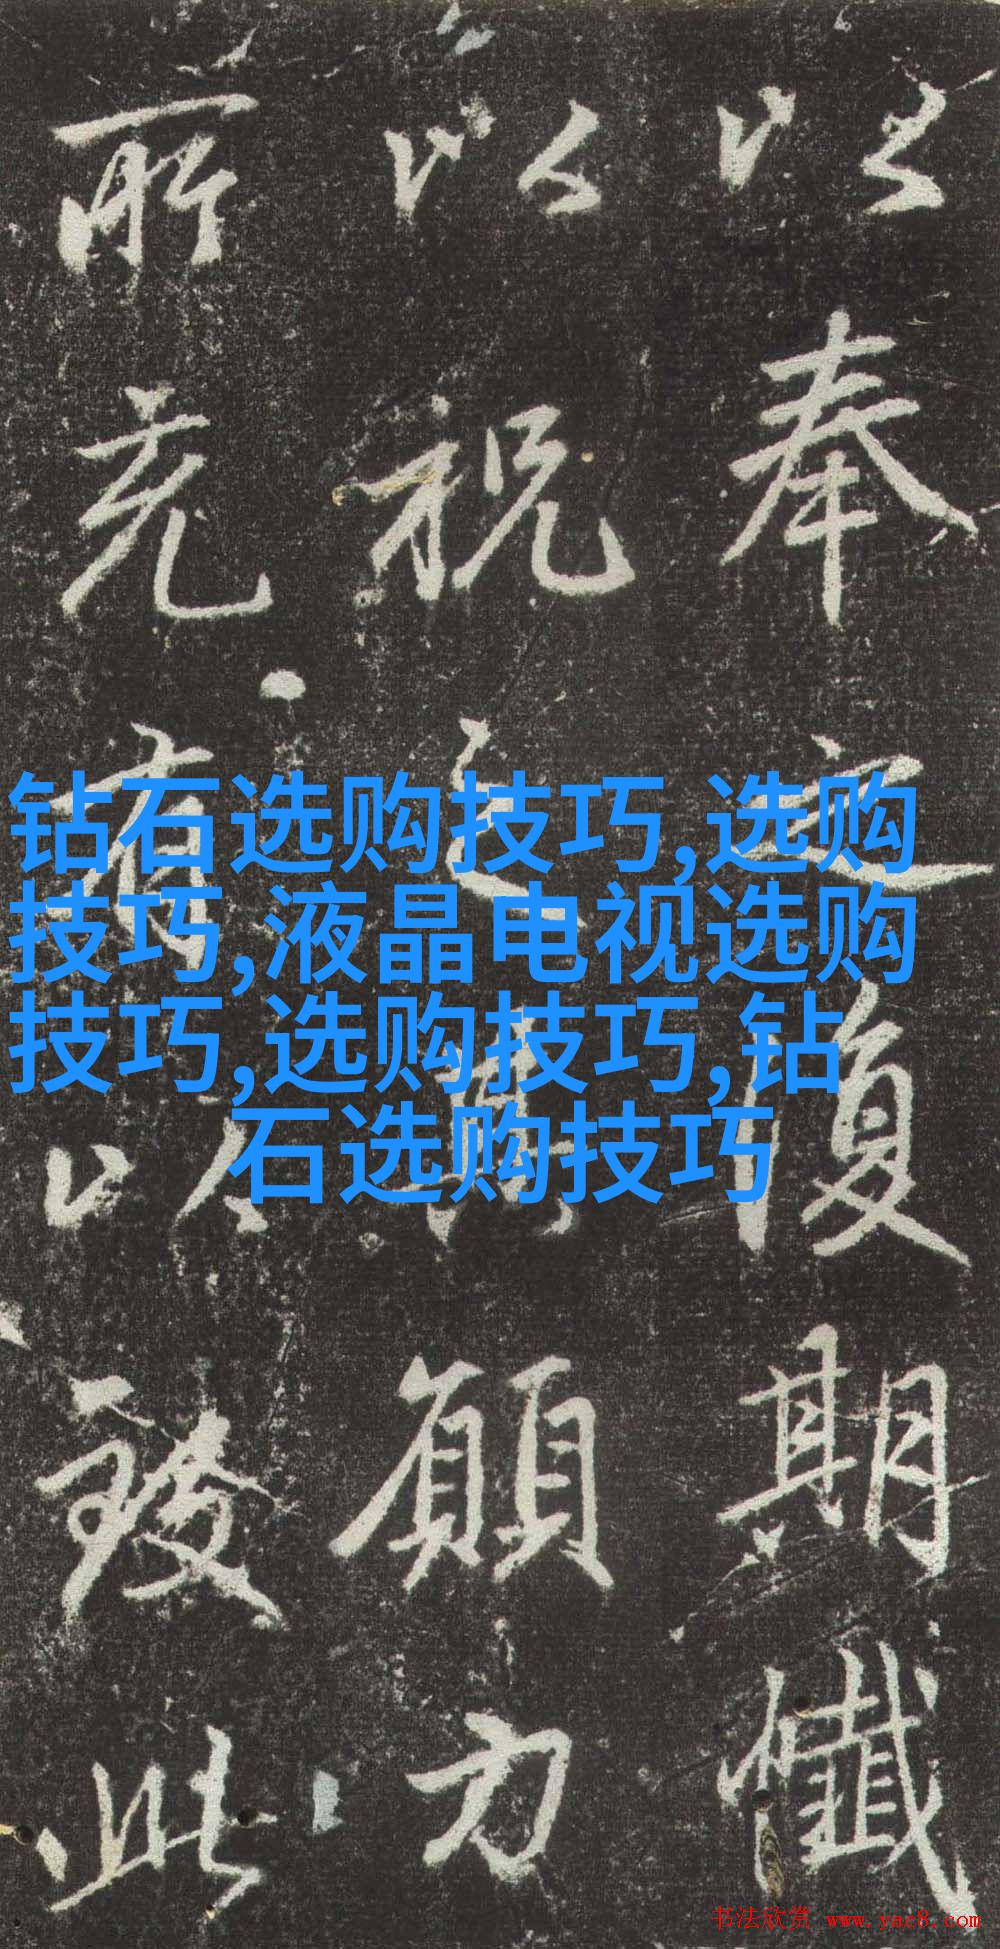 以奉之復期懺
以祝之願力
所以致此
钻石选购技巧,选购
技巧,液晶电视选购
技巧,选购技巧,钻
石选购技巧
书法欣赏 www.yac8.com